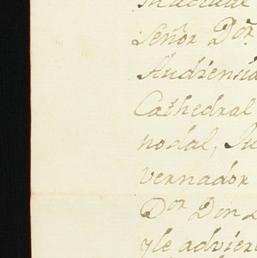 Señor D.or
Audiencia
Cathedral
nodal, Ju
vernador
D.or Don
yle advier